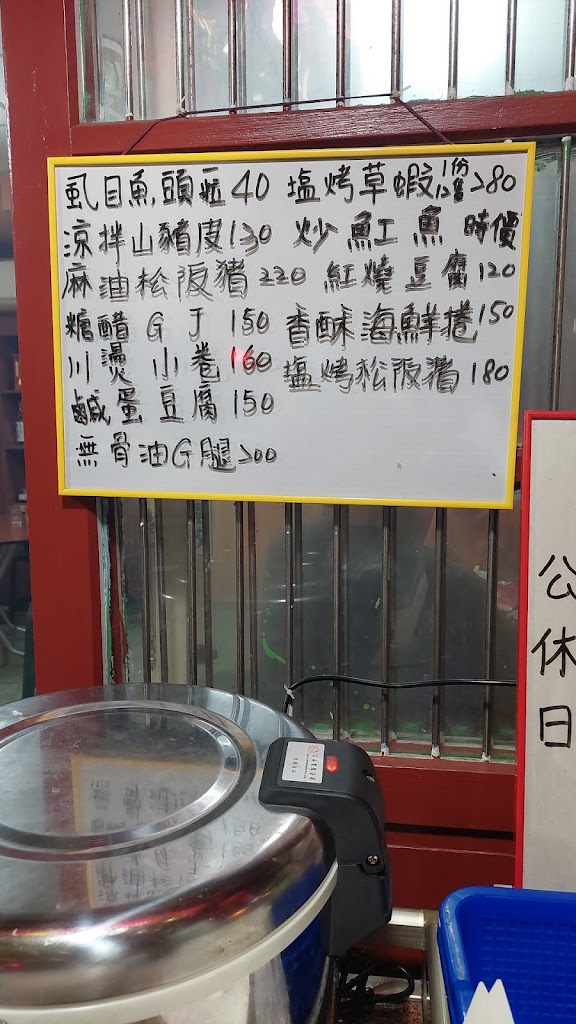 虱目魚頭 40 塩烤草蝦1份12隻280
涼拌山豬皮130 炒魟魚 時價
麻油松阪豬220 紅燒豆腐120
糖醋GJ 150 香酥海鮮捲150
川燙小卷160 塩烤松阪豬180
鹹蛋豆腐150
無骨油G腿200
公休日